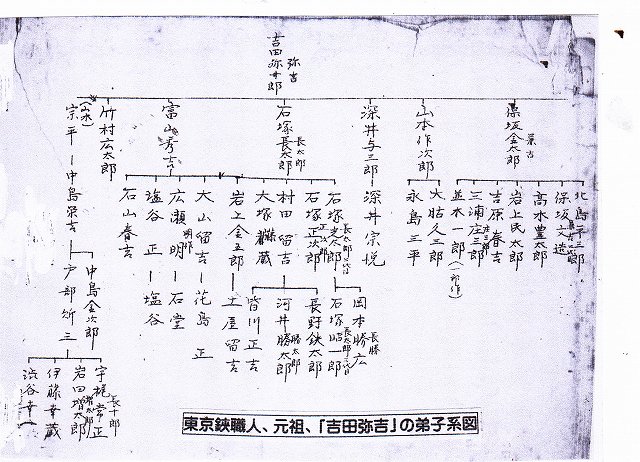 弥吉
吉田弥十郎
兼吉
保坂金太郎
北島平三郎
保坂文造
高木豊太郎
岩上民太郎
吉原春吉
三浦庄三郎
並木一郎
山本作次郎
大粘久三郎
永島三平
深井与三郎
深井宗悦
長太郎
石塚長太郎
石塚
長太郎二代目
石塚昭一郎
長太郎三代目
岡本勝広
長勝
石塚正次郎
長野鉄太郎
村田留吉
河井勝太郎
勝太郎
皆川正吉
大塚藤蔵
岩上金五郎
土屋留吉
富山秀吉
大山留吉
花島正
広瀬明
石堂
塩谷正
塩谷
石山春吉
竹村広太郎
宗平
中島栄吉
中島金次郎
戸部新三
長十郎
宇梶常正
岩田増太郎
伊藤幸蔵
渋谷幸一
東京鋏職人、元祖、「吉田弥吉」の弟子系図